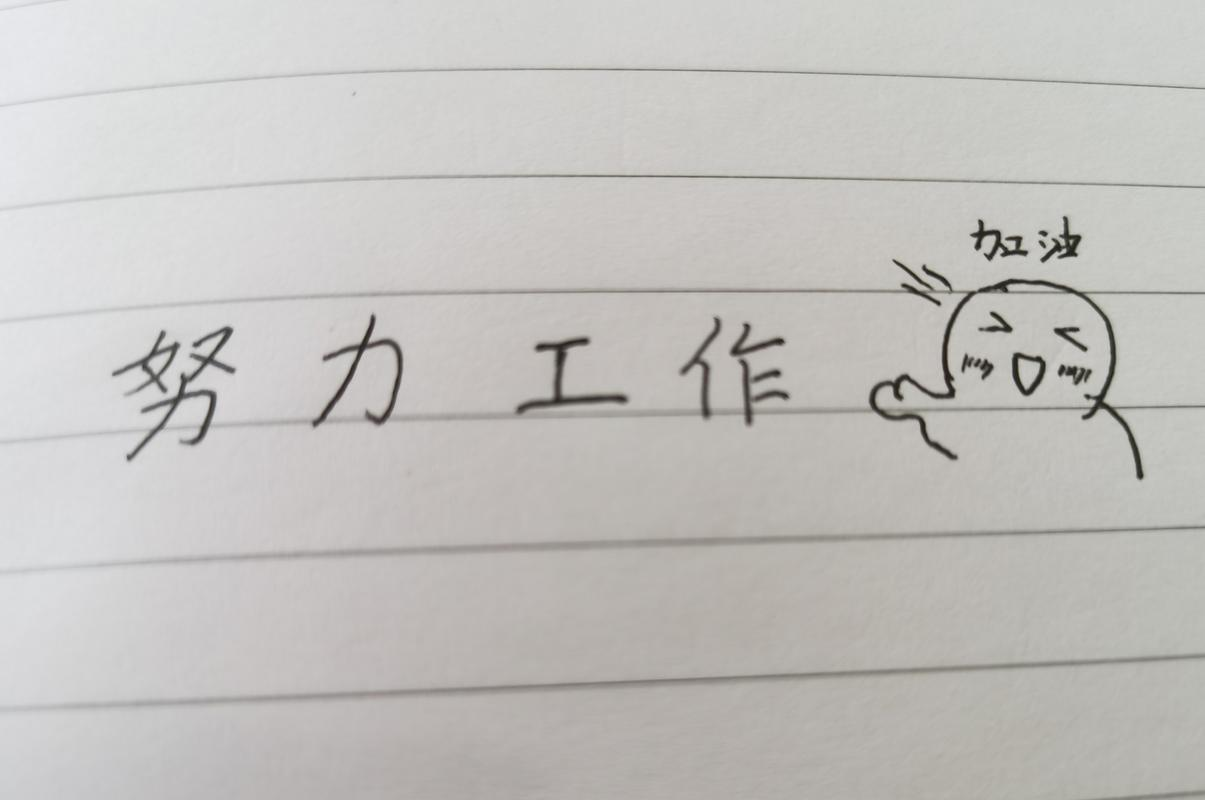 加油
努力工作